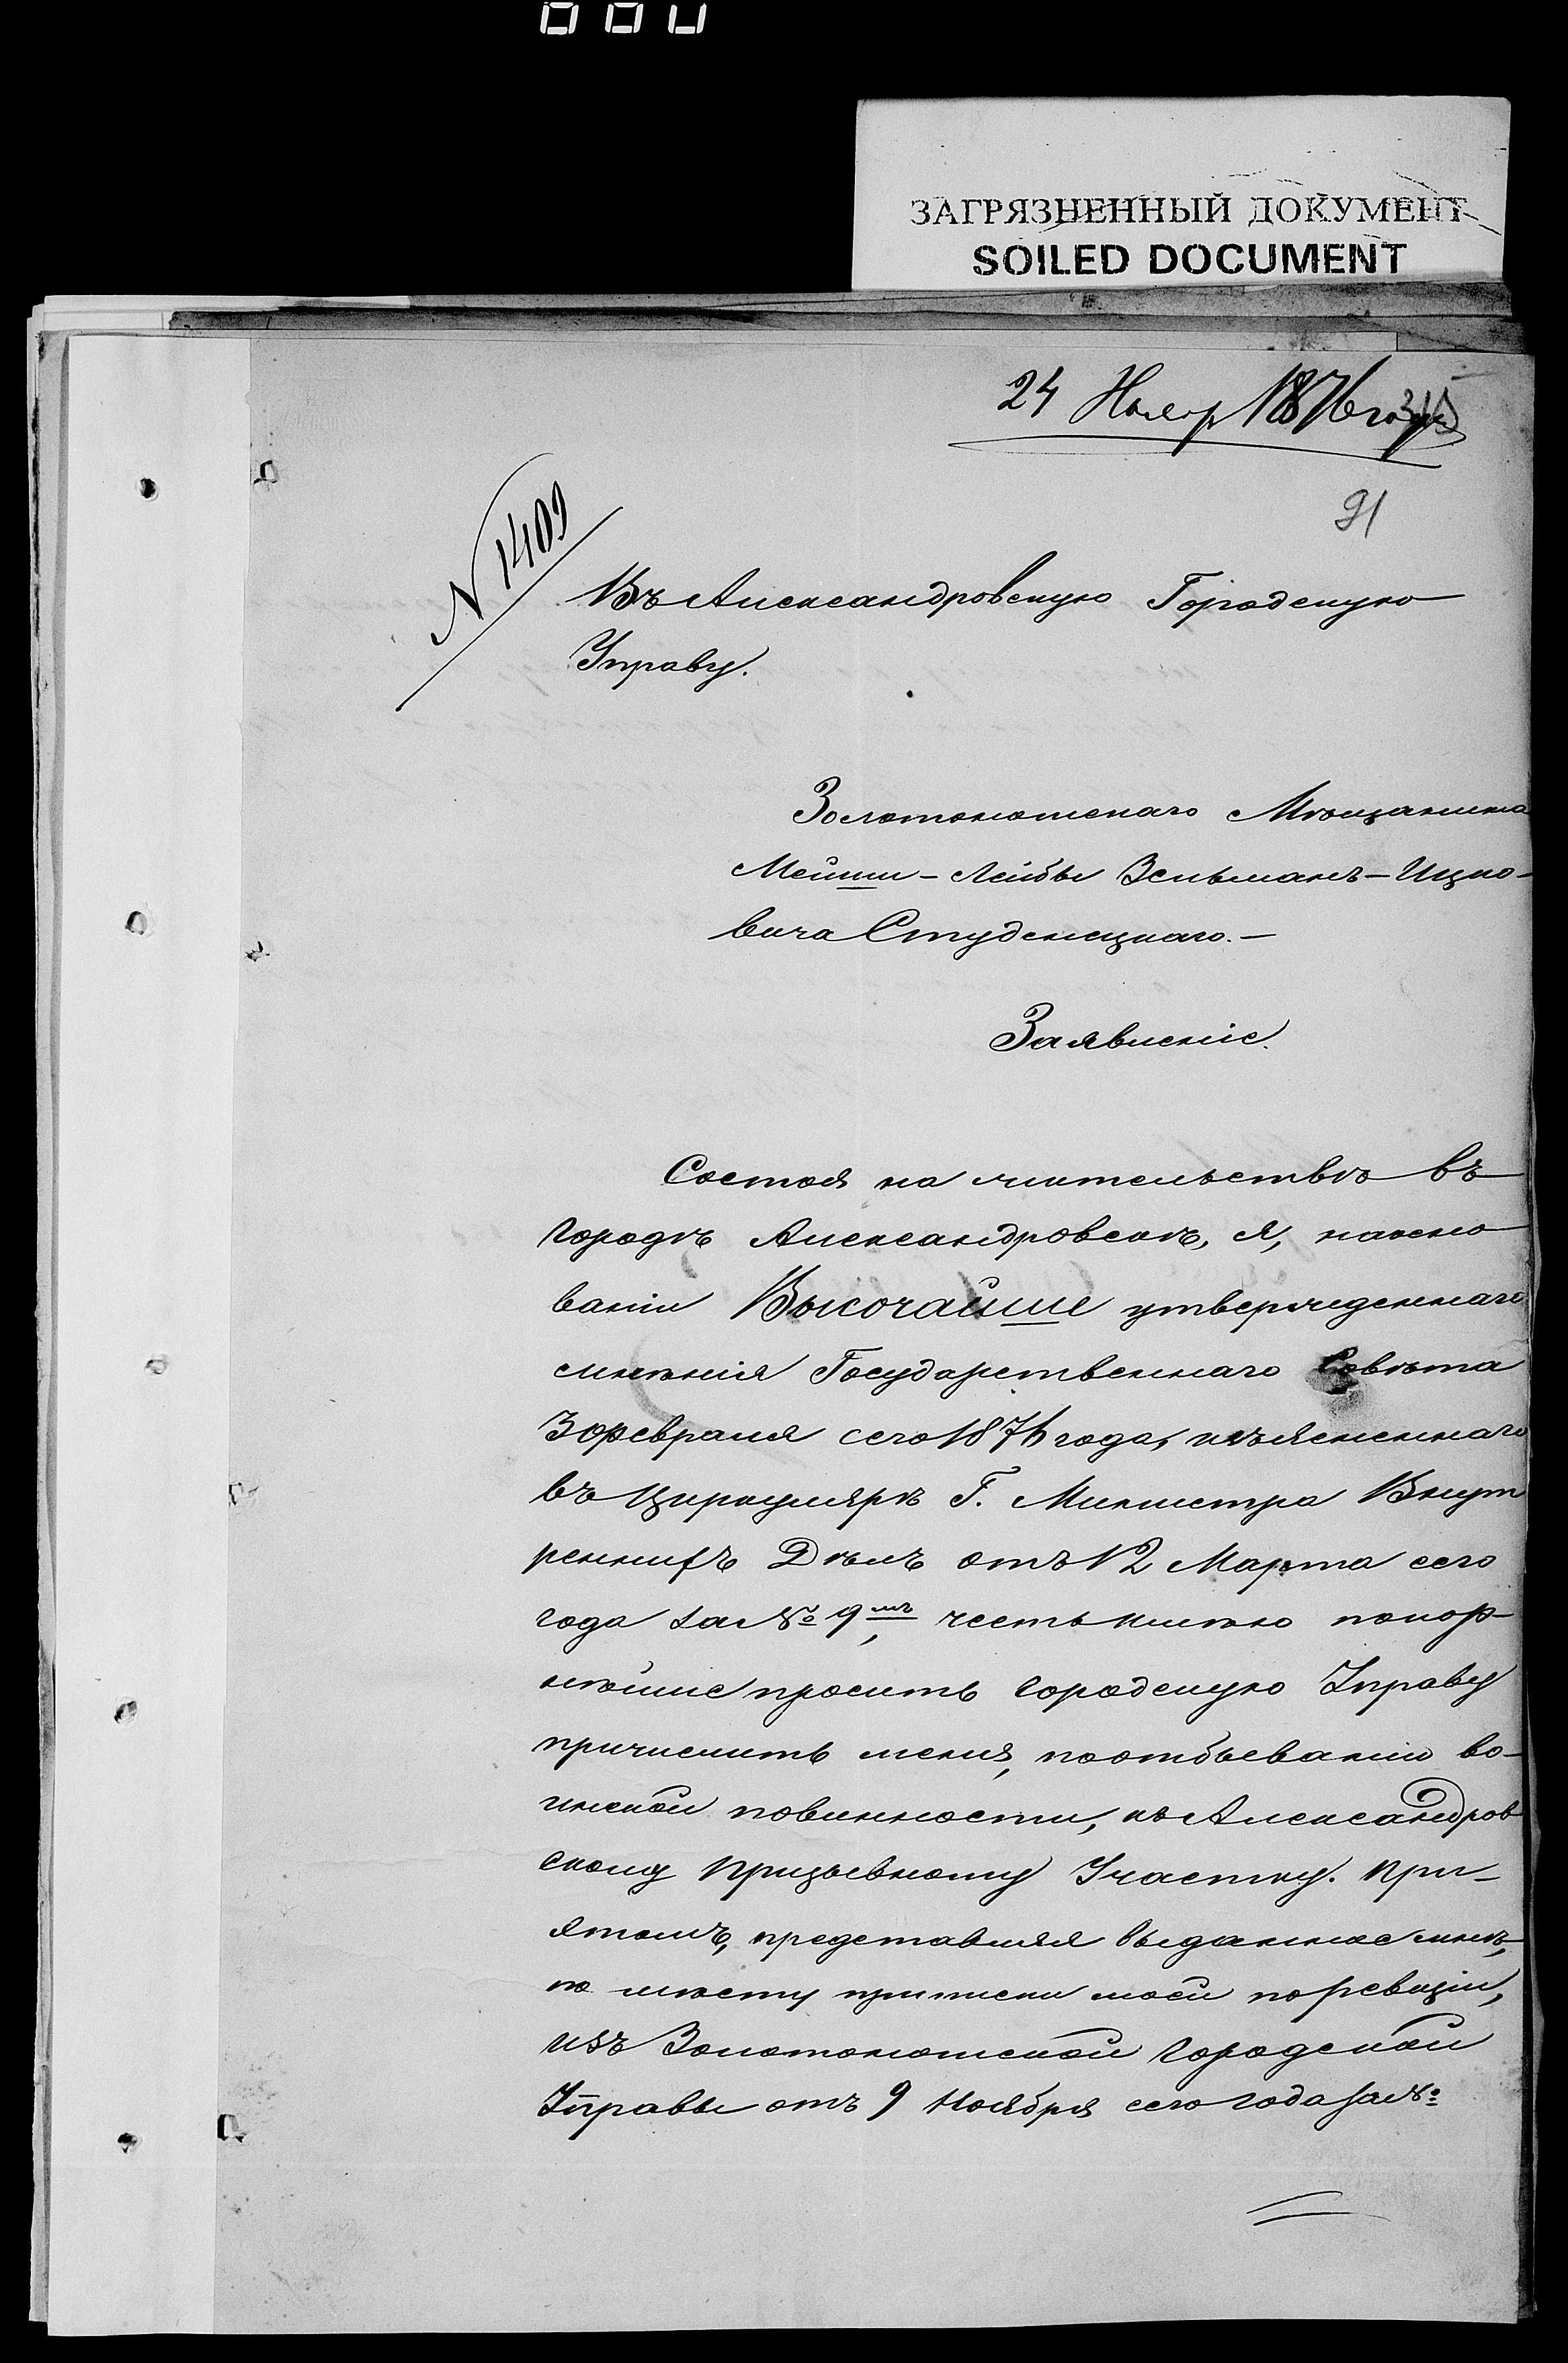 ЗАГРЯЗНЕННЫЙ ДОКУМЕНТ
SOILED DOCUMENT
24 Ноябр 1876 года
91
N 1409
Въ Александровскую Городскую
Управу.
Золотоношскаго Мѣщанина
Мейши-Лейбы Зельманъ-Ицко-
вича Студенецкаго.-
Заявленіе.
Состоя на жительствѣ въ
городѣ Александровскѣ, я, на осно
ваніи Высочайше утвержденнаго
мнѣнія Государственнаго Совѣта
3 февраля сего 1876 года, изъясненнаго
въ Циркулярѣ Г. Министра Внут
реннихъ Дѣлъ отъ 12 Марта сего
года за № 9мъ, честь имѣю покор-
нѣйше просить городскую Управу
причислить меня, по отбыванію во-
инской повинности, къ Александров
скому призывному Участку. При-
этомъ, представляя выданное мнѣ,
по мѣсту приписки моей по ревизіи,
изъ Золотоношской городской
Управы отъ 9 Ноября сего года за №